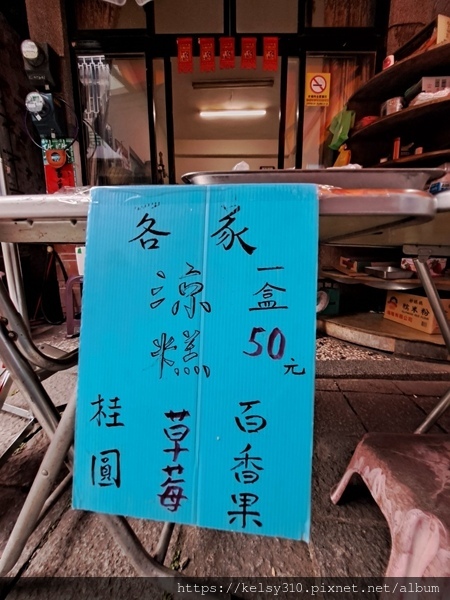 客家
涼糕
一盒
50元
桂圓
草莓
百香果
https://kelsy310.pixnet.net/album